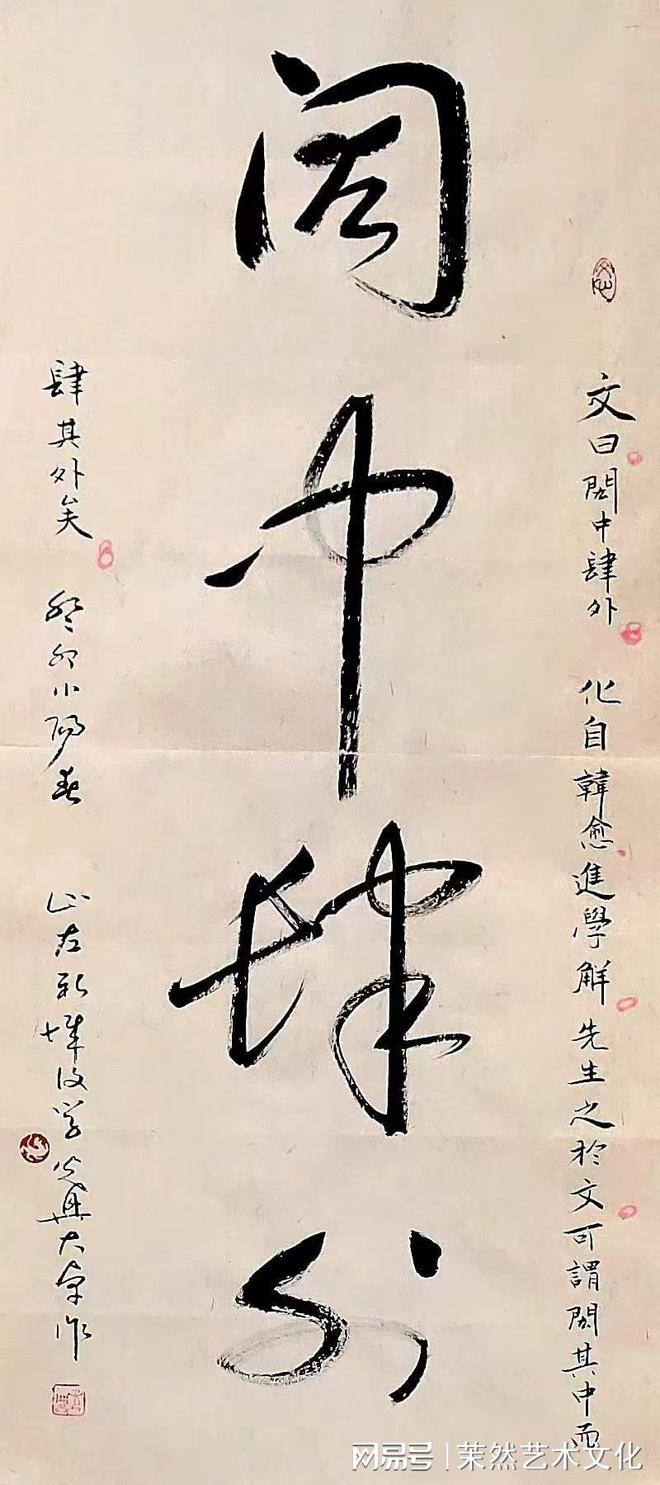 闳中肆外
文曰閎中肆外 化自韓愈進學解先生之於文可謂閎其中而
肆其外矣 癸卯小陽春 山左
网易号 | 茉然艺术文化